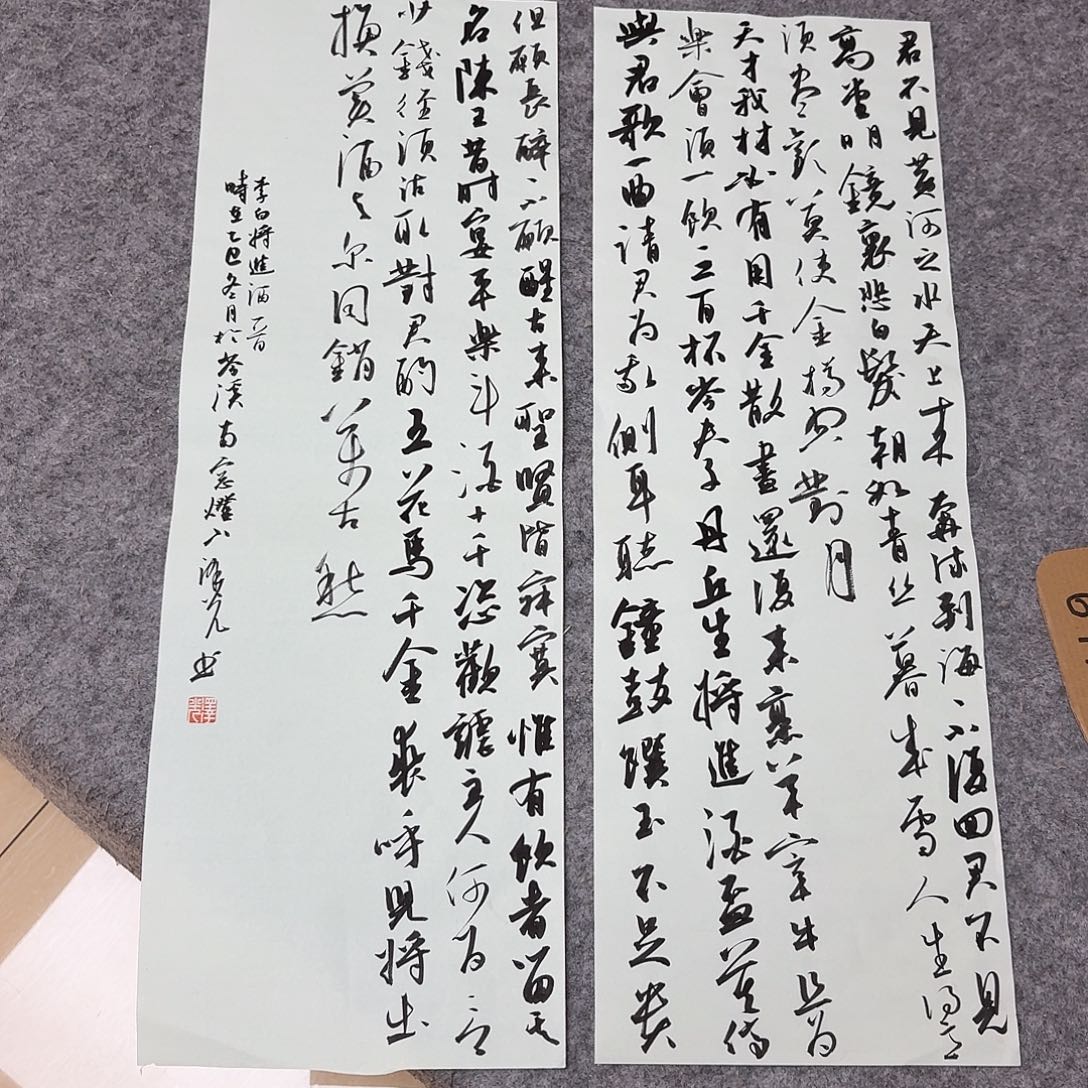 君不見黄河之水天上来奔流到海不復回君不見
高堂明鏡裏悲白髮朝如青丝暮成雪人生得意
須盡歡莫使金樽空對月
天才我材必有用千金散盡還復来烹羊宰牛且為
樂會須一飲三百杯岑夫子丹丘生将進酒盃莫停
與君歌一曲請君为我側耳聽鐘鼓饌玉不足貴
但願長醉不願醒古来聖賢皆寂寞惟有飲者留其
名陳王昔时宴平樂斗酒十千恣歡謔主人何为言
少錢徑須沽取對君酌五花馬千金裘呼兒将出
換美酒与尔同銷万古愁
李白将進酒一首
時在乙巳冬月於岑溪南窗燈下澤光书